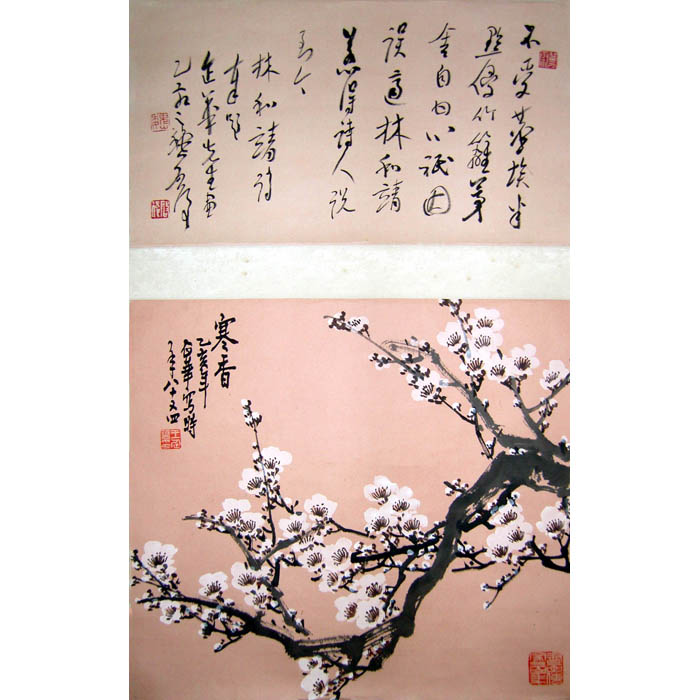 不受塵埃半
點侵竹籬茅
舍自甘心祇因
誤適林和靖
惹得詩人說
到今
林和靖詩
奉題
華先生畫
乙亥之秋
寒香
乙亥年
華寫時
年八十又四